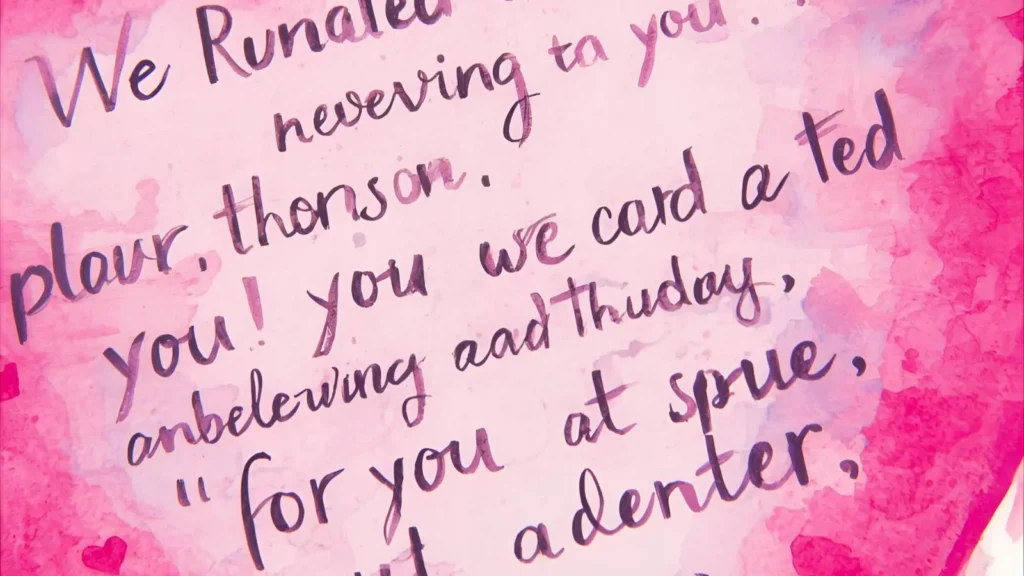 We Runated
neveving to you.
plaur, thonson.
you! you we card a Ted
anbelewing aad Thuday,
"for you at sprue,
adenter,